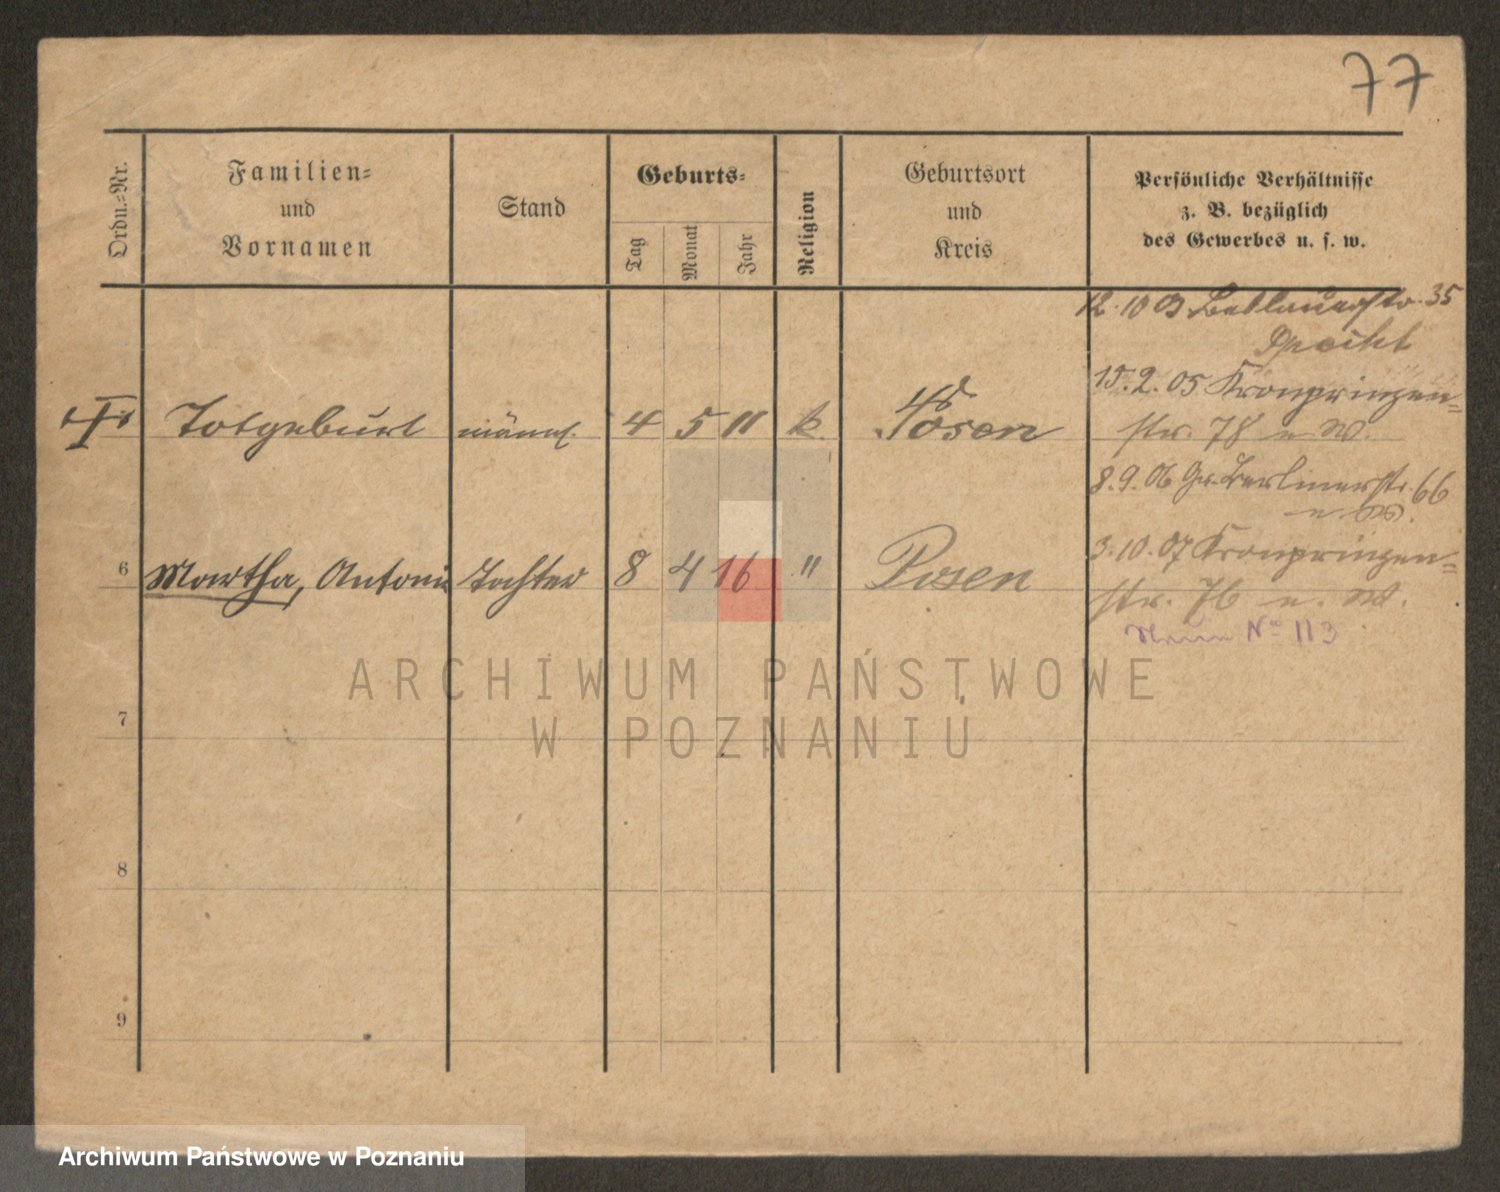 77
Ordn.=Nr.
Familien=
und
Vornamen
Stand
Geburts=
Tag
Monat
Jahr
Religion
Geburtsort
und
Kreis
Persönliche Verhältnisse
z. B. bezüglich
des Gewerbes u. s. w.
12.10 03 35
15.2.05 Kronprinzen=
str. 78 n. W.
8.9.06 Gr. Berlinerstr. 66
n. W.
3.10.07 Kronprinzen=
str. 76 n. W.
No 113
Totgeburt männl. 4 5 11 k. Posen
6 Martha, Antonie Tochter 8 4 16 " Posen
7
8
9
ARCHIWUM PAŃSTWOWE
W POZNANIU
Archiwum Państwowe w Poznaniu